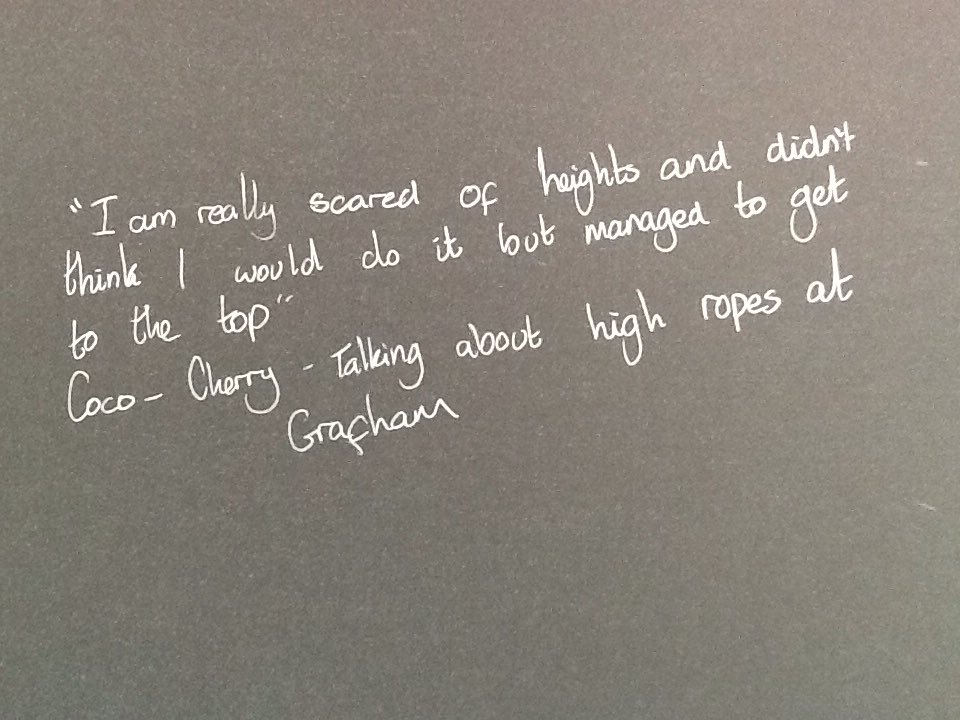 "I am really scared of heights and didn't
think I would do it but managed to get
to the top"
Coco - Cherry - Talking about high ropes at
Grafham